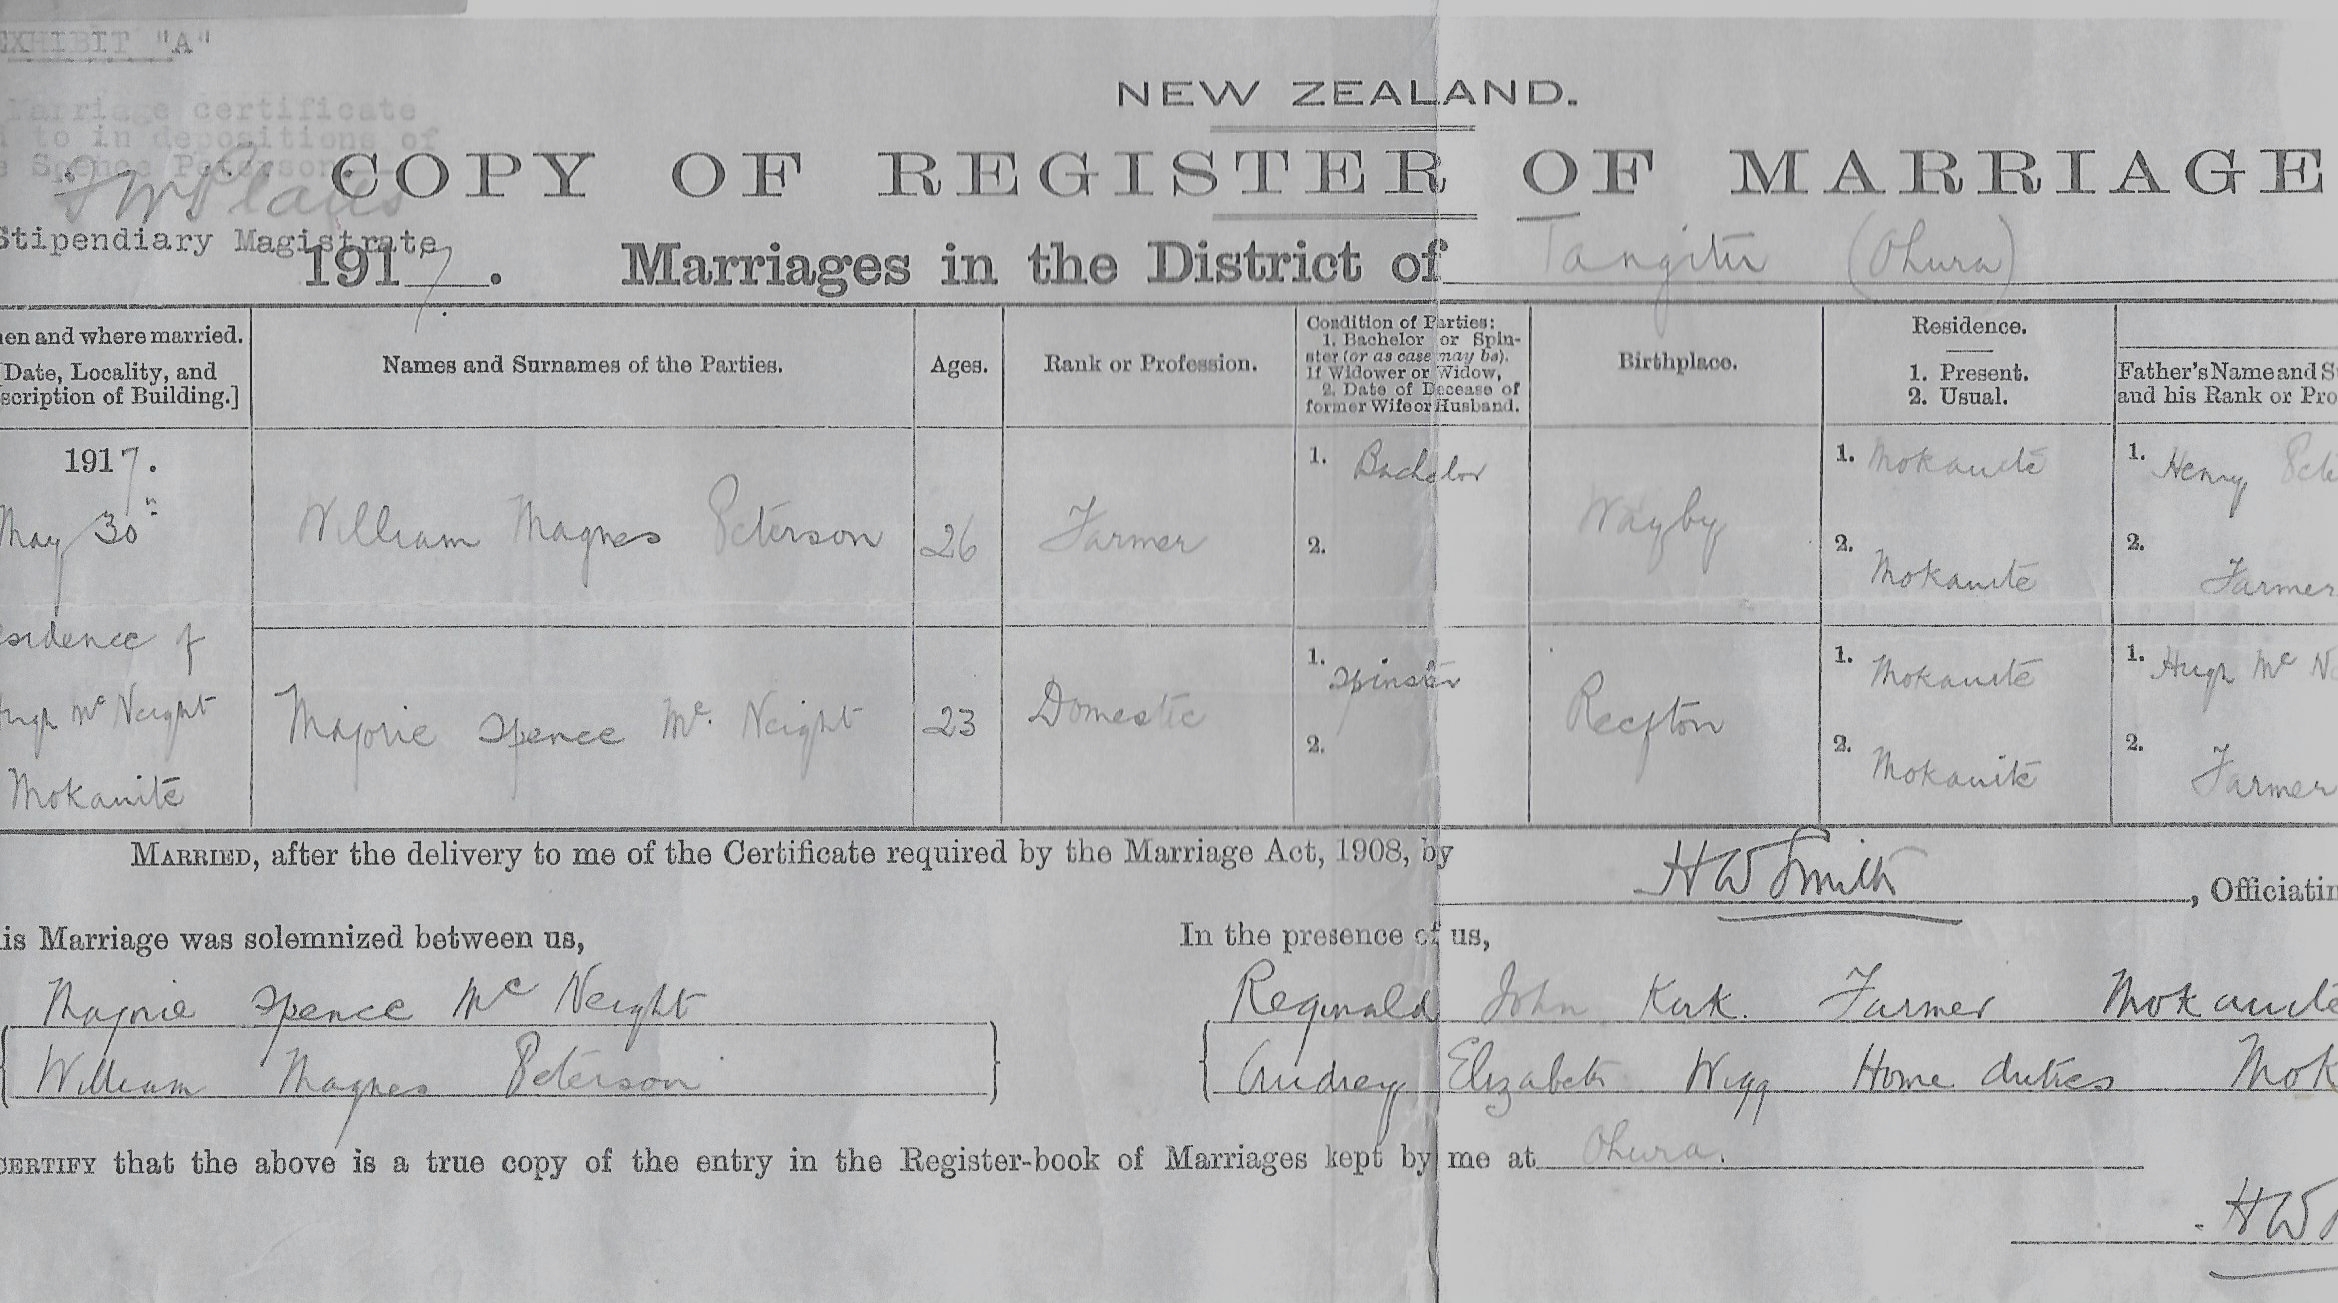 EXHIBIT "A"
Marriage certificate
to in depositions of
Spence Peterson
Stipendiary Magistrate
NEW ZEALAND.
COPY OF REGISTER OF MARRIAGE
1917. Marriages in the District of Tangitu (Ohura)
en and where married.
[Date, Locality, and
scription of Building.]
Names and Surnames of the Parties.
Ages.
Rank or Profession.
Condition of Parties:
1. Bachelor or Spin-
ster (or as case may be).
If Widower or Widow,
2. Date of Decease of
former Wife or Husband.
Birthplace.
Residence.
1. Present.
2. Usual.
Father's Name and S
and his Rank or Pro
1917.
May 30th
William Magnes Peterson
26
Farmer
1. Bachelor
2.
Wayby
1. Mokauite
2. Mokauite
1. Henry Pete
2. Farmer
sidence of
Hugh Mc Neight
Mokauite
Marjorie Spence Mc Neight
23
Domestic
1. Spinster
2.
Reefton
1. Mokauite
2. Mokauite
1. Hugh Mc N
2. Farmer
MARRIED, after the delivery to me of the Certificate required by the Marriage Act, 1908, by
H W Smith, Officiatin
is Marriage was solemnized between us,
In the presence of us,
Marjorie Spence Mc Neight
William Magnes Peterson
Reginald John Kirk. Farmer Mokauite
Audrey Elizabeth Wigg Home duties Mok
CERTIFY that the above is a true copy of the entry in the Register-book of Marriages kept by me at Ohura.
H W